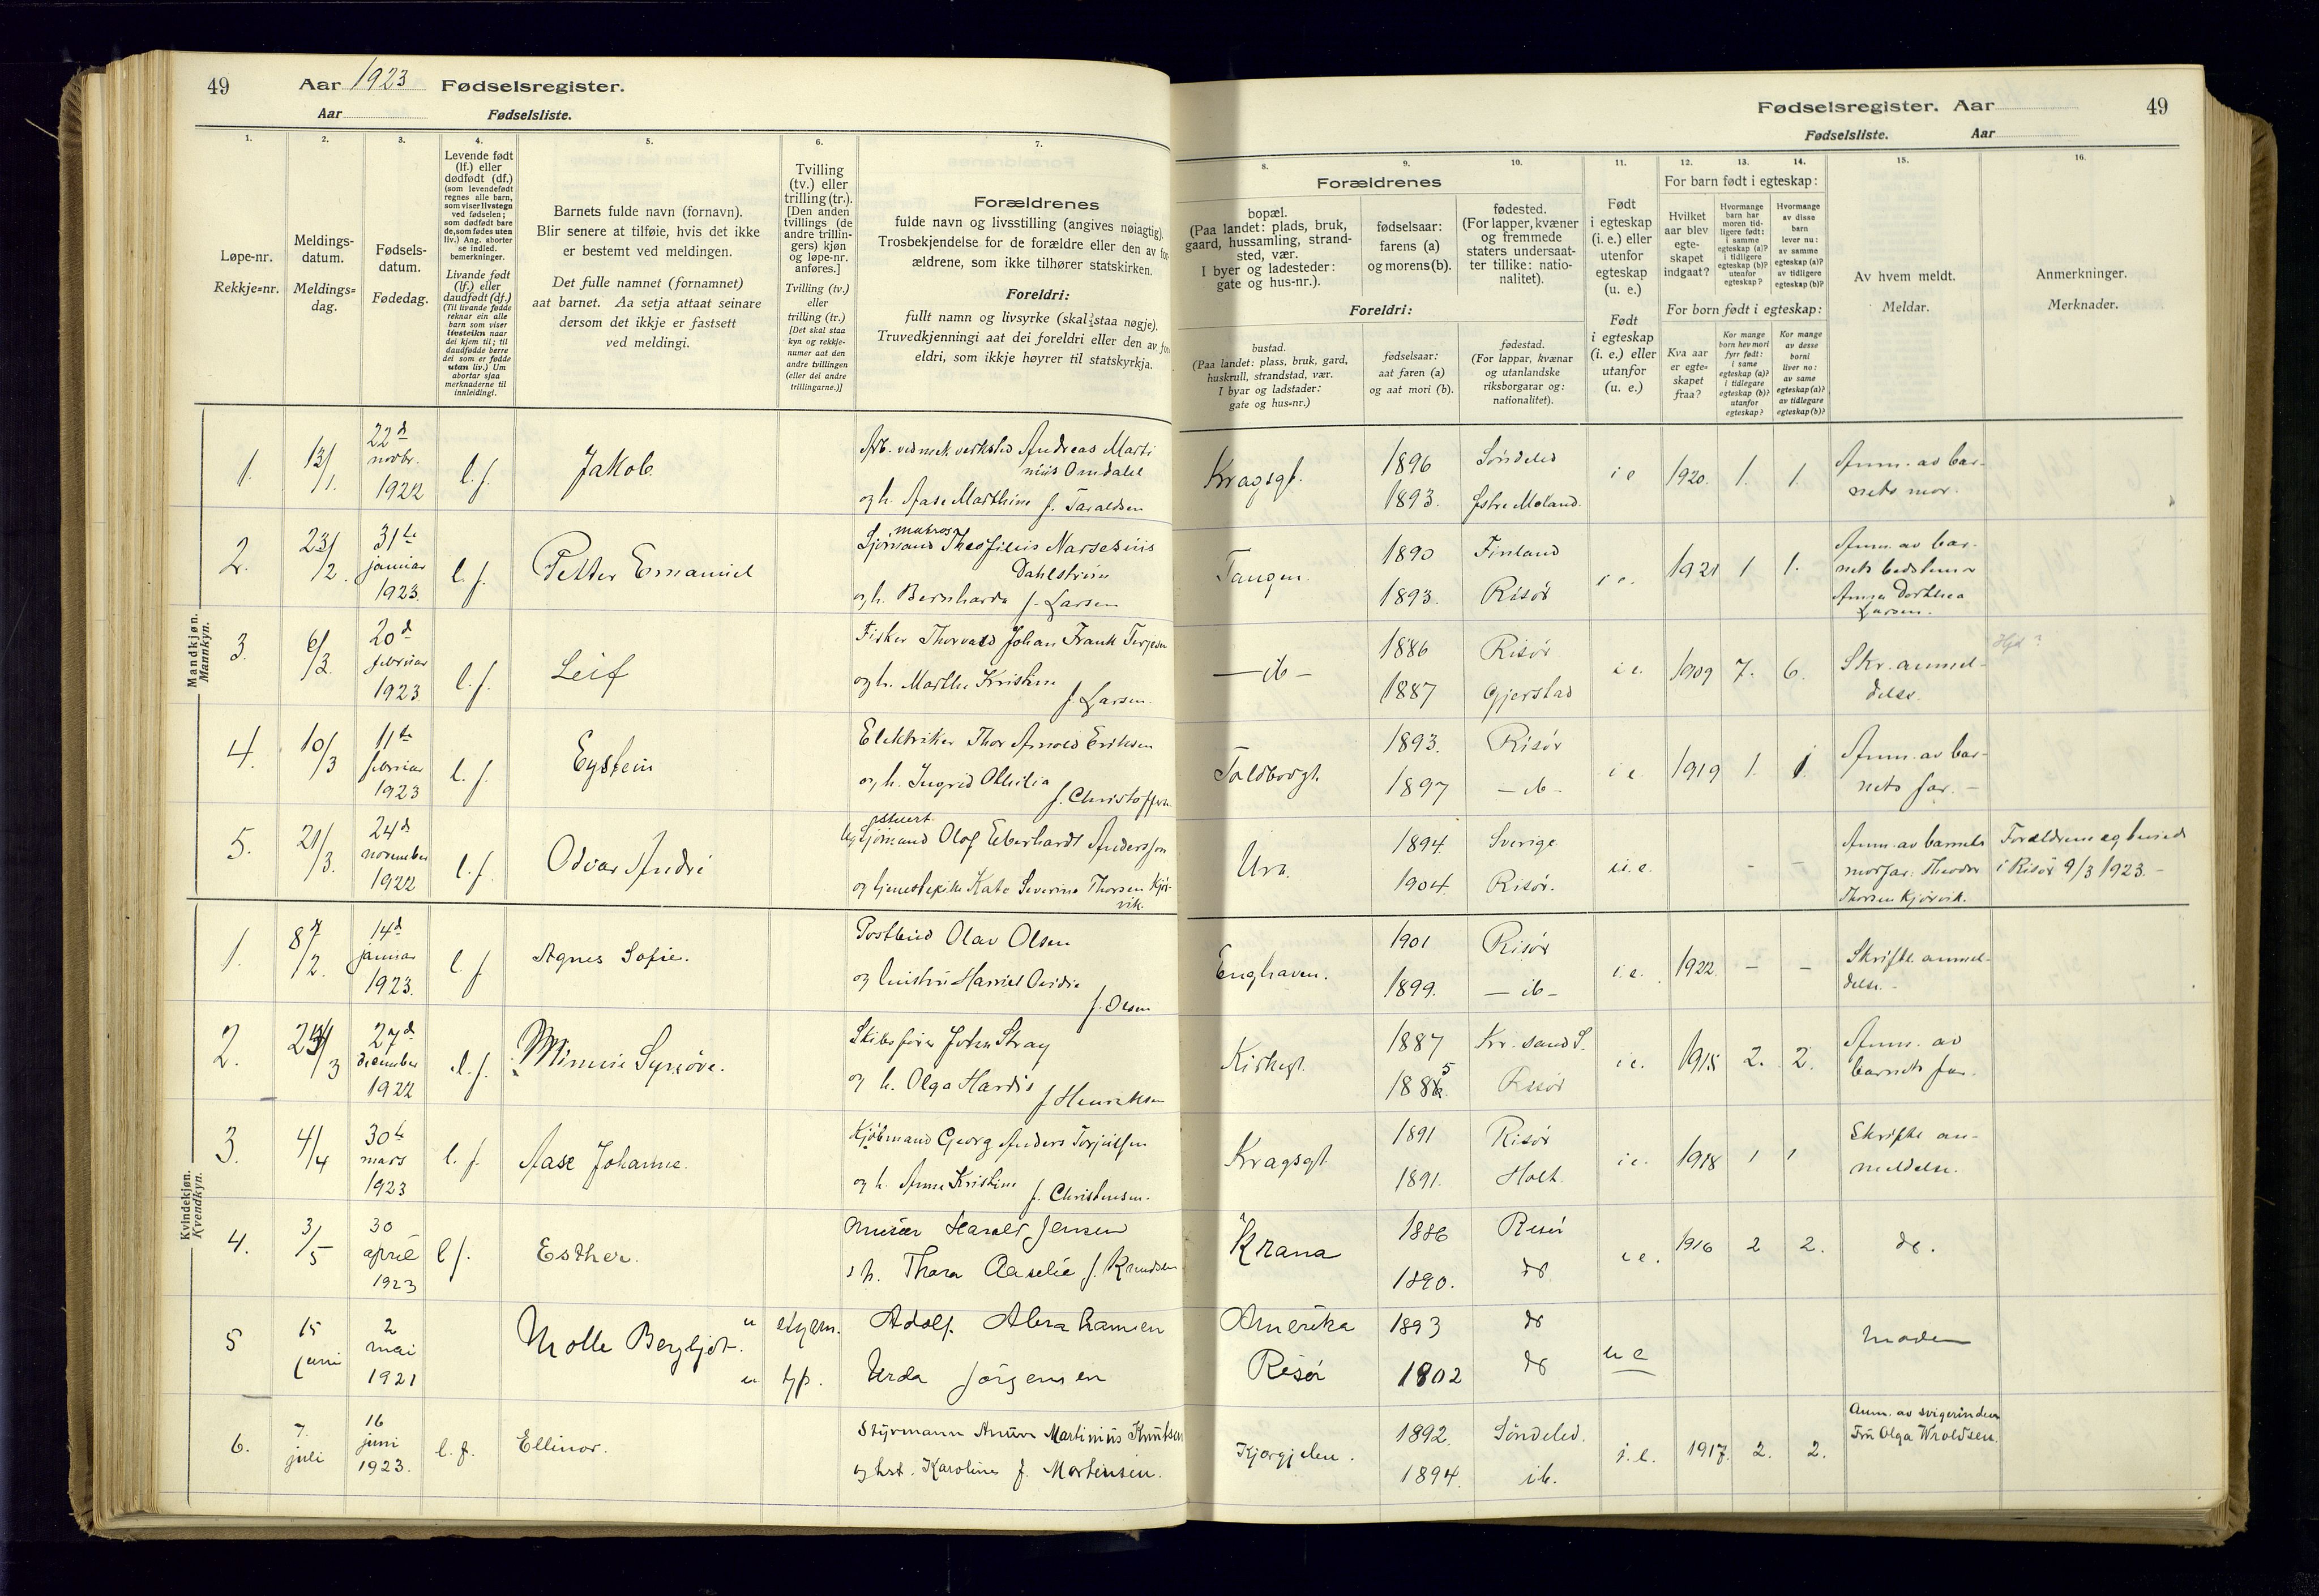 49
Aar 1923 Fødselsregister.
Aar Fødselsliste.
Fødselsregister. Aar
49
Fødselsliste. Aar
1.
Løpe-nr.
Rekkje-nr.
2.
Meldings-
datum.
Meldings-
dag.
3.
Fødsels-
datum.
Fødedag.
4.
Levende født
(lf.) eller
dødfødt (df.)
(som levendefødt
regnes alle barn,
som viser livstegn
ved fødselen;
som dødfødt bare
de, som fødes uten
liv.) Ang. aborter
se indled.
bemerkninger.
Livande født
(lf.) eller
daudfødt (df.)
(Til livande fødde
reknar ein alle
barn som viser
livsteikn naar
dei kjem til; til
daudfødde berre
dei som er fødde
utan liv.) Um
abortar sjaa
merknaderne til
innleidingi.
5.
Barnets fulde navn (fornavn).
Blir senere at tilføie, hvis det ikke
er bestemt ved meldingen.
Det fulle namnet (fornamnet)
aat barnet. Aa setja attaat seinare
dersom det ikkje er fastsett
ved meldingi.
6.
Tvilling
(tv.) eller
trilling (tr.).
[Den anden
tvillings (de
andre trillin-
gers) kjøn
og løpe-nr.
anføres.]
Tvilling (tv.)
eller
trilling (tr.)
[Det skal staa
kyn og rekkje-
numer aat den
andre tvillingen
(eller dei andre
trillingarne.)]
7.
Forældrenes
fulde navn og livsstilling (angives nøiagtig).
Trosbekjendelse for de forældre eller den av for-
ældrene, som ikke tilhører statskirken.
Foreldri:
fullt namn og livsyrke (skal staa nøgje).
Truvedkjenningi aat dei foreldri eller den av for-
eldri, som ikkje høyrer til statskyrkja.
8.
Forældrenes
bopæl.
(Paa landet: plads, bruk,
gaard, hussamling, strand-
sted, vær.
I byer og ladesteder:
gate og hus-nr.).
Foreldri:
bustad.
(Paa landet: plass, bruk, gard,
huskrull, strandstad, vær.
I byar og ladstader:
gate og hus-nr.)
9.
fødselsaar:
farens (a)
og morens (b).
fødselsaar:
aat faren (a)
og aat mori (b).
10.
fødested.
(For lapper, kvæner
og fremmede
staters undersaat-
ter tillike: natio-
nalitet).
fødestad.
(For lappar, kvænar
og utanlandske
riksborgarar og:
nationalitet).
11.
Født
i egteskap
(i. e.) eller
utenfor
egteskap
(u. e.)
Født
i egteskap
(i. e.) eller
utanfor
(u. e.)
12.
13.
14.
For barn født i egteskap:
Hvilket
aar blev
egte-
skapet
indgaat?
Hvormange
barn har
moren tid-
ligere født:
i samme
egteskap (a)?
i tidligere
egteskap (b)?
utenfor
egteskap?
Hvormange
av disse
barn
lever nu:
av samme
egteskap (a)?
av tidligere
egteskap (b)?
For born født i egteskap:
Kva aar
er egte-
skapet
fraa?
Kor mange
born hev mori
fyrr født:
i same
egteskap (a)?
i tidlegare
egteskap (b)?
utanfor
egteskap?
Kor mange
av desse
borni
liver no:
av same
egteskap (a)?
av tidlegare
egteskap (b)?
15.
Av hvem meldt.
Meldar.
16.
Anmerkninger.
Merknader.
Mandkjøn.
Mannkyn.
1. 13/1. 22d novbr. 1922 l. f. Jakob.
Arb. ved mek. verksted Andreas Marti
nius Omdalel
og h. Aase Marthine f. Taraldsen
Kragsgt. 1896 Søndeled
1893. Østre Moland.
i e 1920. 1. 1. Anm. av bar-
nets mor.
2. 23/2. 31te januar 1923. l. f. Petter Emanuel
matros
Sjømand Theofilius Narsesius
Dahlstrøm
og h. Bernharda f. Larsen
Tangen. 1890 Finland
1893. Risør
i e. 1921 1 1. Anm. av bar-
nets bedstemor
Anna Dorthea
Larsen.
3. 6/3. 20d februar 1923 l. f. Leif
Fisker Thorvald Johan Frank Terjesen
og h. Marthe Kristine
f. Larsen.
— ib — 1886 Risør
1887 Gjerstad
i e. 1909 7. 6. Skr. anmel-
delse.
4. 10/3 11te februar 1923 l. f. Eystein
Elektriker Thor Arnold Eriksen
og h. Ingrid Othilia
f. Christoffersen
Toldbodgt. 1893. Risør
1897 — ib —
i e. 1919 1. 1. Anm. av bar-
nets far. —
5. 21/3. 24d november 1922 l. f. Odvar André
stuert
Sjømand Olof Eberhardt Andersson
og tjenestepike Kate Severine Thorsen Kjør-
vik.
Ura. 1894. Sverige
1904. Risør.
u. e. - - Anm. av barnets
morfar: Theodor
Thorsen Kjørvik.
Forældrene egteviet
i Risør 9/3 1923. -
Kvindekjøn.
Kvendkyn.
1. 8/2. 14d januar 1923. l. f. Agnes Sofie.
Postbud Olav Olsen
og hustru Harriet Ovidia
f. Olsen
Enghaven. 1901 Risør
1899. — ib —
i. e. 1922. - - Skriftl. anmel-
delse. -
2. 27d december 1922 l. f. Minnie Synnøve.
Skibsfører John Stray
og h. Olga Hardis
f. Henriksen
Kirkegt. 1887 Kr. sand S.
1885 Risør
i e. 1915 2. 2. Anm. av
barnets far.
3. 4/4 30te mars 1923 l. f. Aase Johanne.
Kjøbmand Georg Anders Torjussen
og h. Anna Kristine f. Christensen.
Kragsgt. 1891 Risør
1891. Holt.
i e. 1918 1 1 Skriftl. an-
meldelse.
4. 3/5 30 april 1923 l f. Esther.
Murer Harald Jensen
o h. Thora Aaselie f. Knudsen
Krana 1886 Risør
1890. do
i e. 1916 2 2. do.
5 15 juni 2 mai 1921 Molle Bergljot.
Adolf Abrahamsen
Urda Jørgensen
Amerika 1893 do
Risør 1802 do
u e Moderen
6. 7. juli 16 juni 1923. l. f. Ellinor.
Styrmann Anton Martinius Knutsen
og hst. Karoline f. Mortensen.
Kjærgjelen. 1892. Søndeled.
1894. ib.
i. e. 1917. 2. 2. Anm. av svigerinden
Fru Olga Wroldsen.